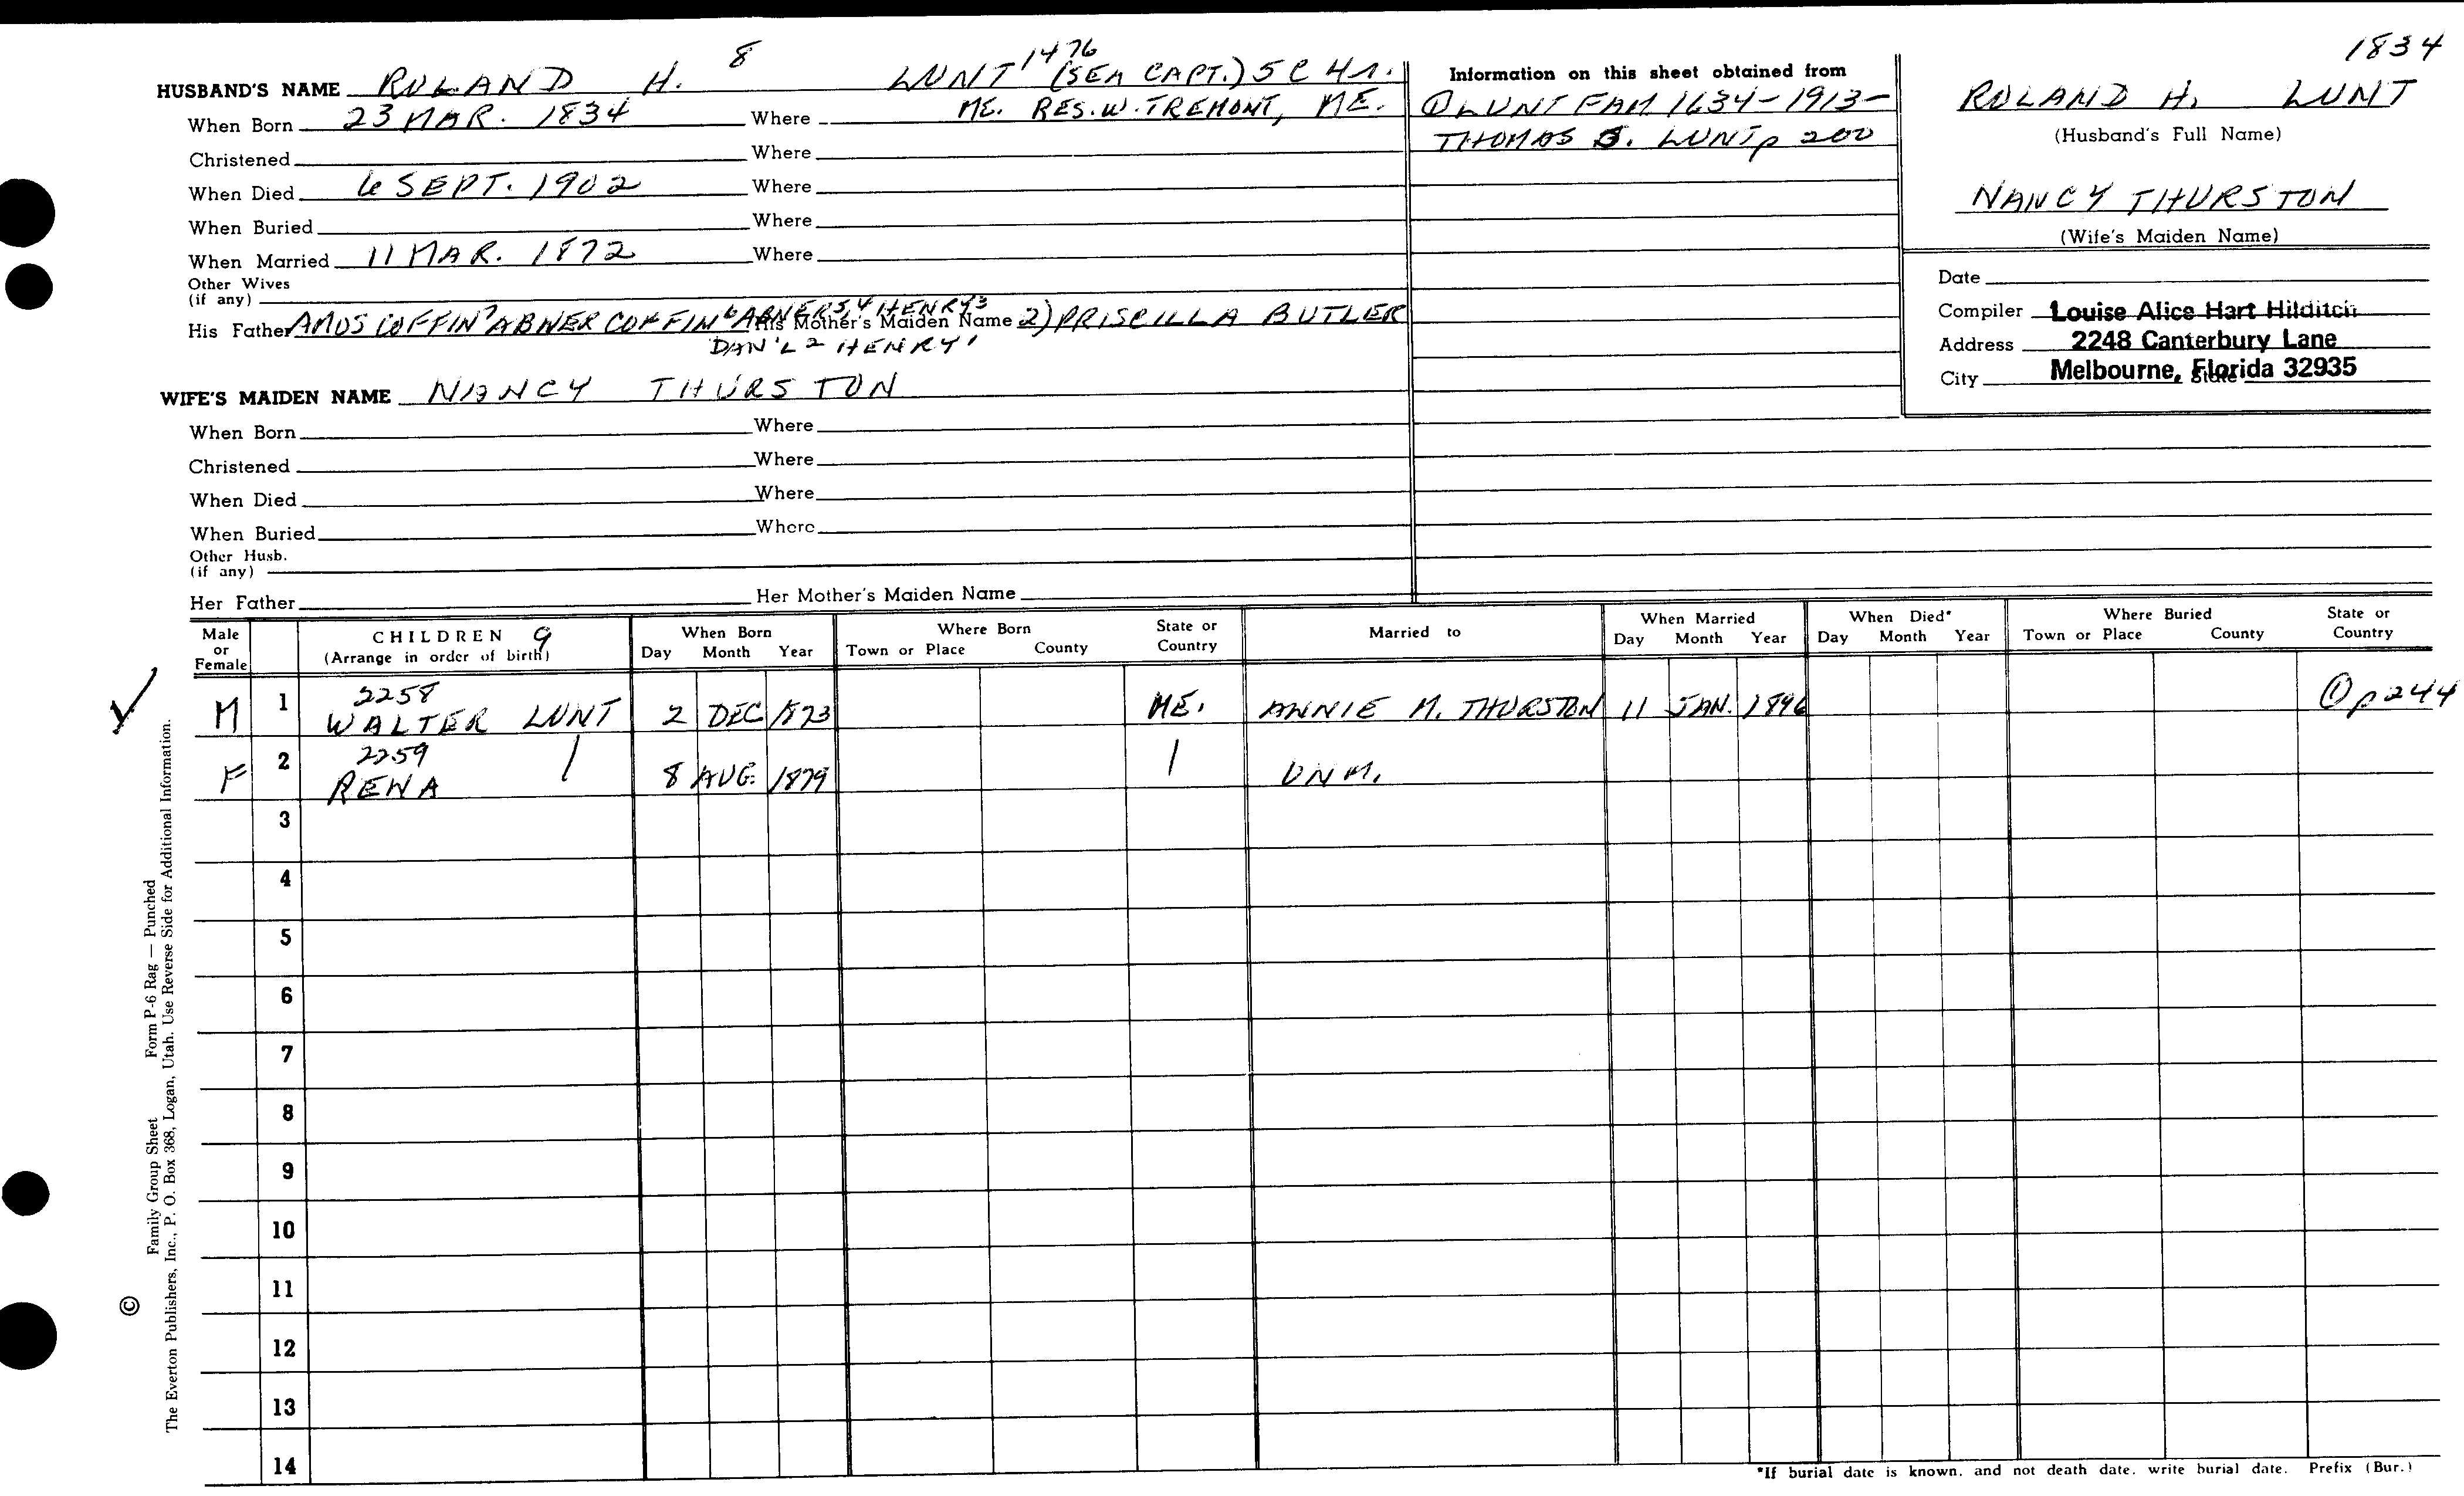 1834
HUSBAND'S NAME ROLAND H. 8 LUNT 1476 (SEA CAPT.) 5 C 4 r.
When Born 23 MAR. 1834 Where ME. RES. W. TREMONT, ME.
Christened Where
When Died 6 SEPT. 1902 Where
When Buried Where
When Married 11 MAR. 1872 Where
Other Wives
(if any)
His Father AMOS COFFIN7 ABNER COFFIN6 ABNER5,4 HENRY3 His Mother's Maiden Name 2) PRISCILLA BUTLER
DAN'L2 HENRY1
Information on this sheet obtained from
① LUNT FAM 1634-1913-
THOMAS S. LUNT p 200
ROLAND H. LUNT
(Husband's Full Name)
NANCY THURSTON
(Wife's Maiden Name)
Date
Compiler Louise Alice Hart Hilditch
Address 2248 Canterbury Lane
City Melbourne, Florida 32935 State
WIFE'S MAIDEN NAME NANCY THURSTON
When Born Where
Christened Where
When Died Where
When Buried Where
Other Husb.
(if any)
Her Father Her Mother's Maiden Name
Male or Female CHILDREN 9 (Arrange in order of birth) When Born Day Month Year Where Born Town or Place County State or Country Married to When Married Day Month Year When Died* Day Month Year Where Buried Town or Place County State or Country
M 1 2258 WALTER LUNT 2 DEC 1873 ME. ANNIE M. THURSTON 11 JAN. 1896 ① p 244
F 2 2259 RENA | 8 AUG. 1879 | UNM.
3
4
5
6
7
8
9
10
11
12
13
14
*If burial date is known, and not death date, write burial date. Prefix (Bur.)
© Family Group Sheet Form P-6 Rag — Punched
The Everton Publishers, Inc., P. O. Box 368, Logan, Utah. Use Reverse Side for Additional Information.